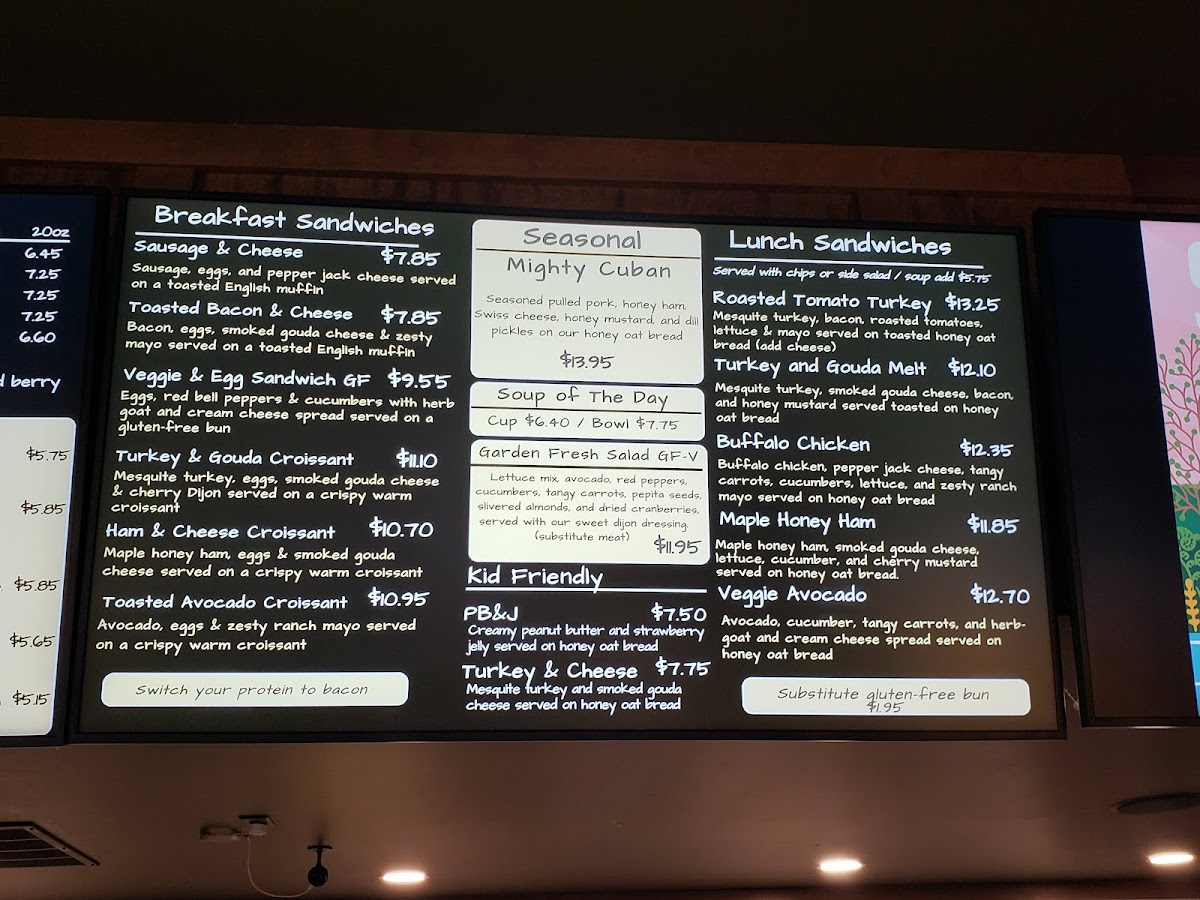 20oz
6.45
7.25
7.25
7.25
6.60
berry
$5.75
$5.85
$5.85
$5.65
$5.15
Breakfast Sandwiches
Sausage & Cheese $7.85
Sausage, eggs, and pepper jack cheese served
on a toasted English muffin
Toasted Bacon & Cheese $7.85
Bacon, eggs, smoked gouda cheese & zesty
mayo served on a toasted English muffin
Veggie & Egg Sandwich GF $9.55
Eggs, red bell peppers & cucumbers with herb
goat and cream cheese spread served on a
gluten-free bun
Turkey & Gouda Croissant $11.10
Mesquite turkey, eggs, smoked gouda cheese
& cherry Dijon served on a crispy warm
croissant
Ham & Cheese Croissant $10.70
Maple honey ham, eggs & smoked gouda
cheese served on a crispy warm croissant
Toasted Avocado Croissant $10.95
Avocado, eggs & zesty ranch mayo served
on a crispy warm croissant
Switch your protein to bacon
Seasonal
Mighty Cuban
Seasoned pulled pork, honey ham,
Swiss cheese, honey mustard, and dill
pickles on our honey oat bread
$13.95
Soup of The Day
Cup $6.40 / Bowl $7.75
Garden Fresh Salad GF-V
Lettuce mix, avocado, red peppers,
cucumbers, tangy carrots, pepita seeds,
slivered almonds, and dried cranberries,
served with our sweet dijon dressing.
(substitute meat) $11.95
Kid Friendly
PB&J $7.50
Creamy peanut butter and strawberry
jelly served on honey oat bread
Turkey & Cheese $7.75
Mesquite turkey and smoked gouda
cheese served on honey oat bread
Lunch Sandwiches
Served with chips or side salad / soup add $5.75
Roasted Tomato Turkey $13.25
Mesquite turkey, bacon, roasted tomatoes,
lettuce & mayo served on toasted honey oat
bread (add cheese)
Turkey and Gouda Melt $12.10
Mesquite turkey, smoked gouda cheese, bacon,
and honey mustard served toasted on honey
oat bread
Buffalo Chicken $12.35
Buffalo chicken, pepper jack cheese, tangy
carrots, cucumbers, lettuce, and zesty ranch
mayo served on honey oat bread
Maple Honey Ham $11.85
Maple honey ham, smoked gouda cheese,
lettuce, cucumber, and cherry mustard
served on honey oat bread.
Veggie Avocado $12.70
Avocado, cucumber, tangy carrots, and herb-
goat and cream cheese spread served on
honey oat bread
Substitute gluten-free bun
$1.95